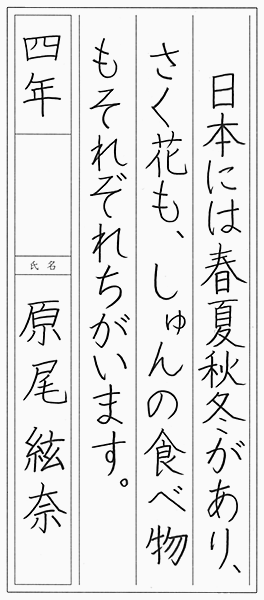 日本には春夏秋冬があり、
さく花も、しゅんの食べ物
もそれぞれちがいます。
四年
氏名
原尾絃奈